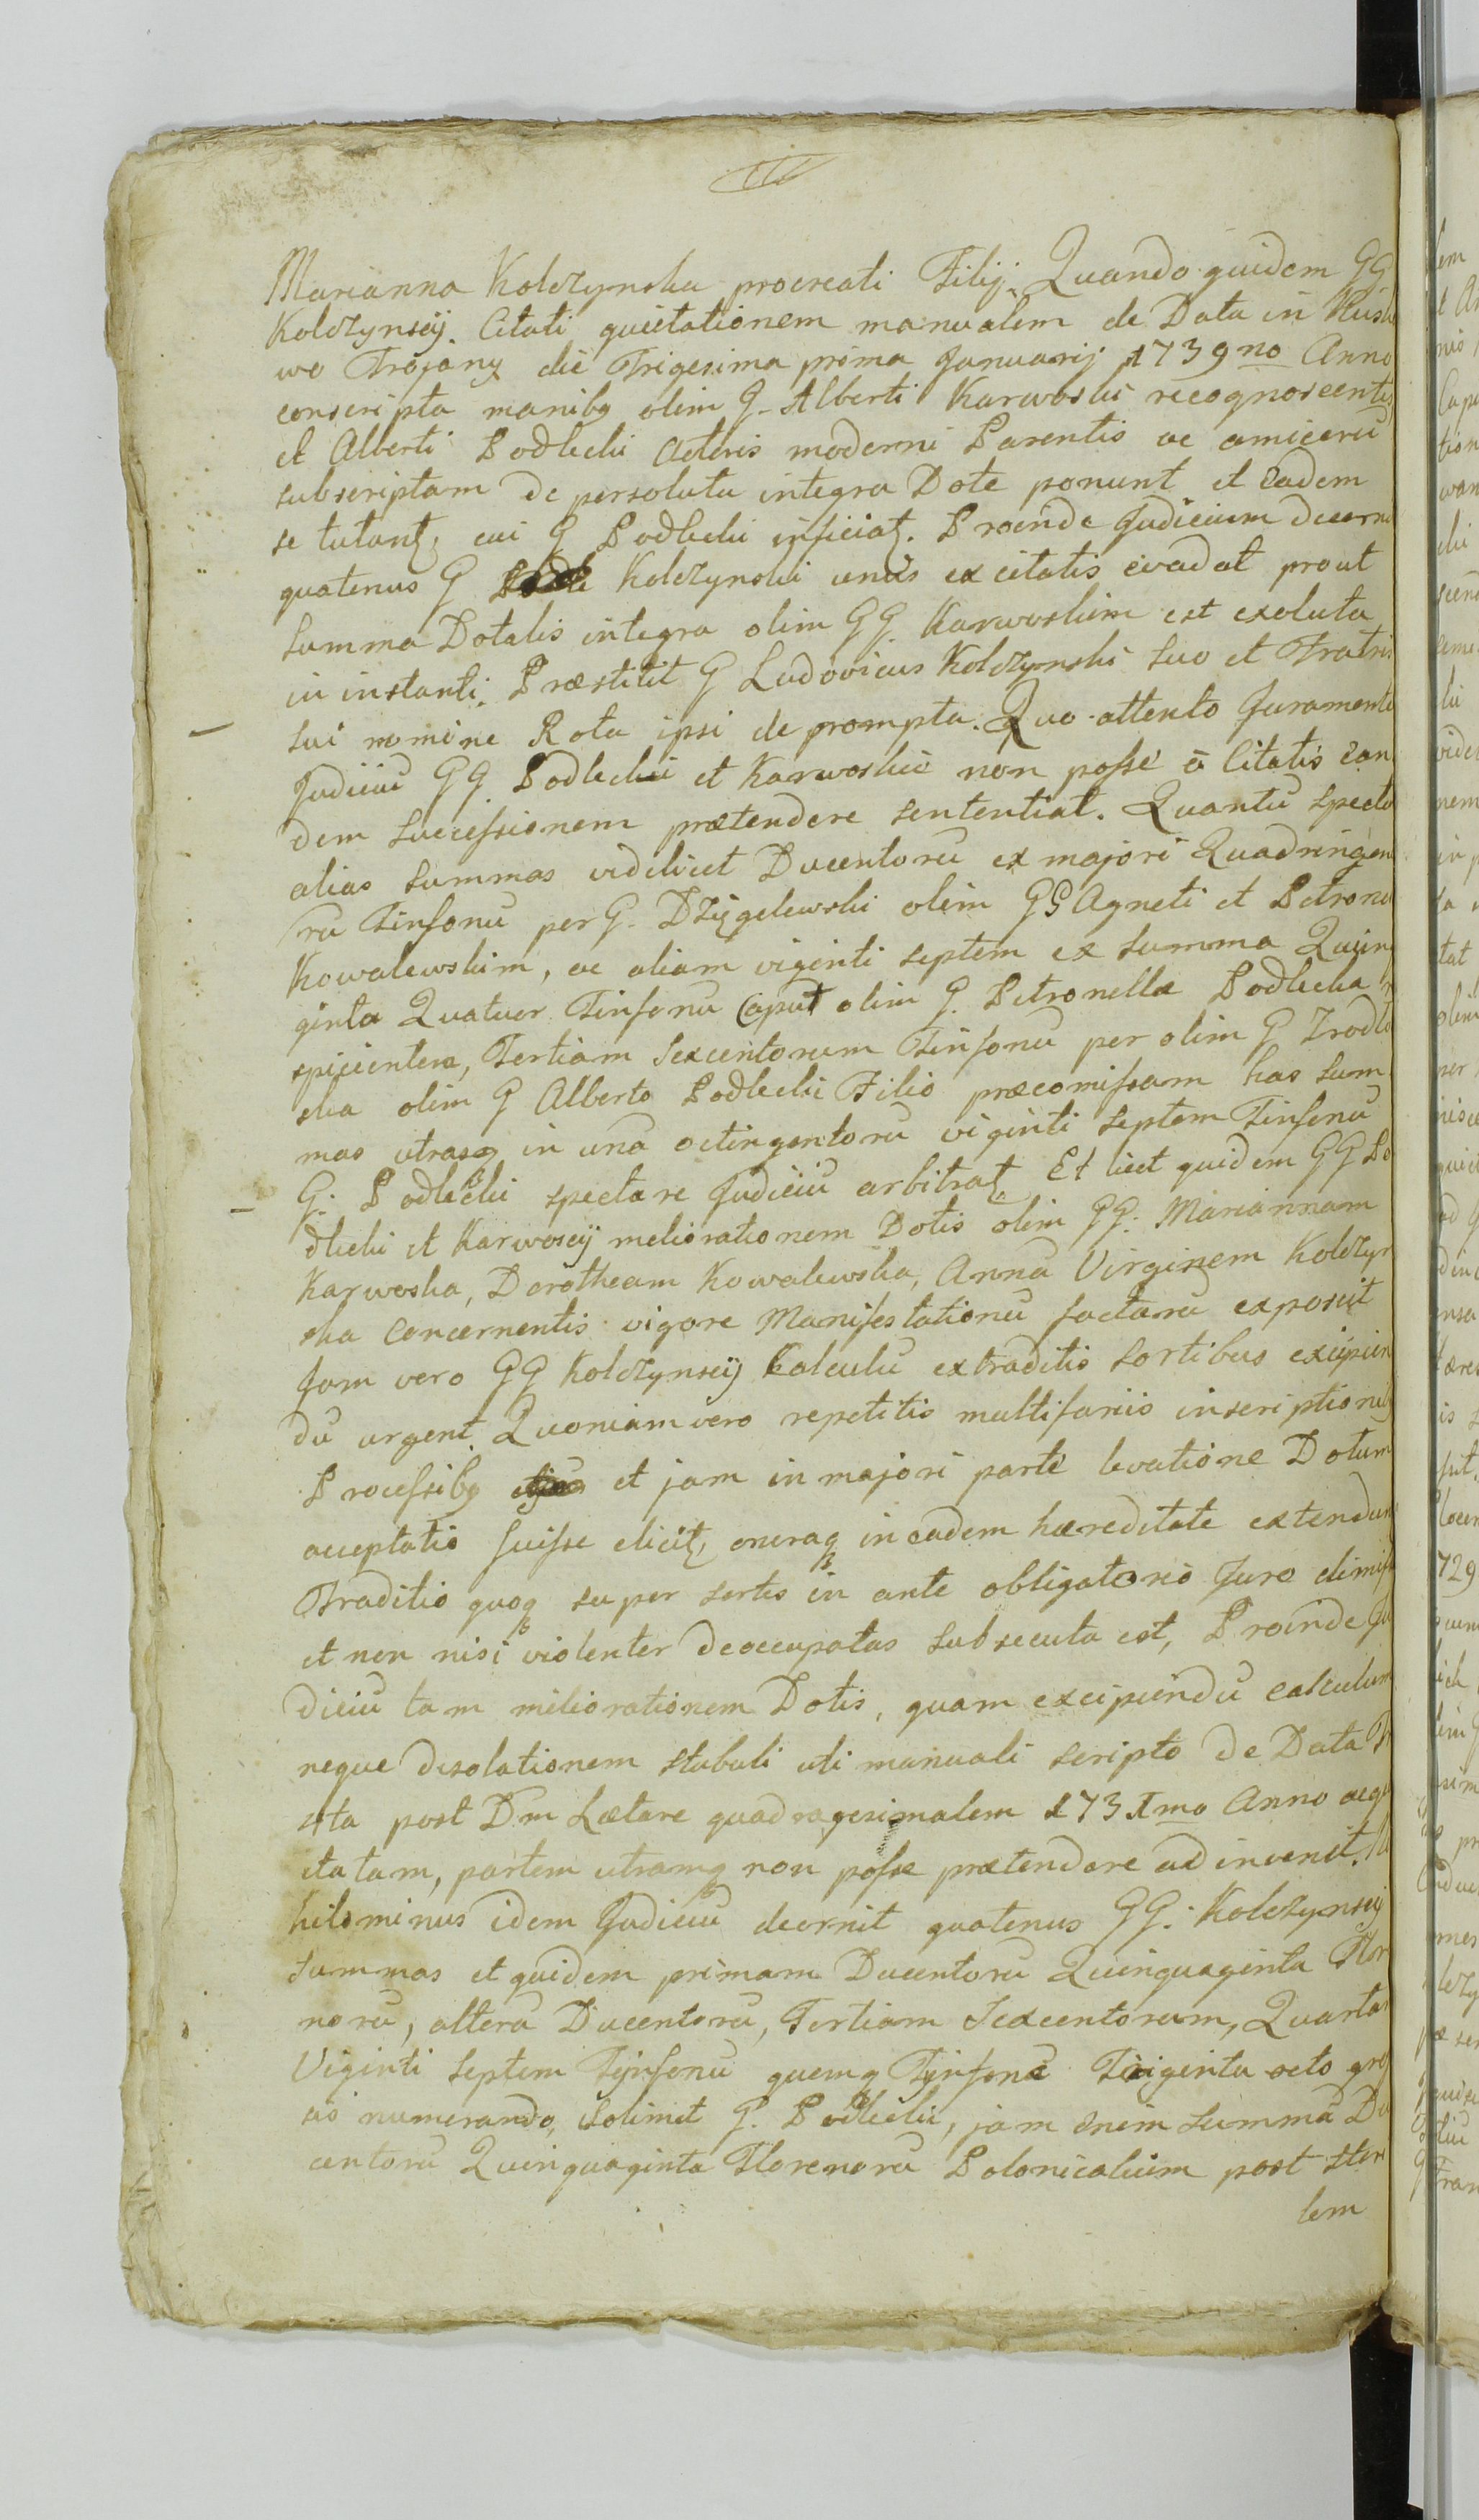 Marianna Kolczynska procreati Filij. Quando quidem GG
Kolczynscij. Citati quietationem manualem de Data in
wo Trojany die Trigesima prima Januarij 1739no Anno
conscripta manibq olim G. Alberti Karwoski recognoscentis
et Alberti Podlecki Actoris moderni Parentis ac amicorũ
subscriptam de persoluta integra Dote ponunt et eadem
se tutant, cui G Podlecki inficiat. Proinde Judicium decerni
quatenus G Kolczynski unus ex citatis evadat prout
summa Dotalis integra olim GG. Karwoskim est exoluta
in instanti. Præstitit G Ludovicus Kolczynski suo et Fratris
sui nomine Rota ipsi de prompta. Quo attento Juramento
Judiciũ GG. Podlecki et Karwoskie non posse a Citatis ean
dem successionem prætendere sententiat. Quantũ specta
alias summas videlicet Ducentorũ ex majori Quadringen
rũ Tinfonũ per G. Dzięgelewski olim GG Agneti et Petrone
Kowalewskim, ac aliam viginti septem ex summa Quin
ginta Quatuor Tinfonũ Caput olim G. Petronellæ Podlecka
spicientem, Tertiam Sexcentorum Tinfonũ per olim G Zrodlo
ska olim G Alberto Podlecki Filio præcomissam has sum
mas utrasq in una octingentorũ viginti septem Tinfonũ
G. Podlecki spectare Judiciũ arbitrat. Et licet quidem GG Po
dlecki et Karwoscij meliorationem Dotis olim GG. Mariannam
Karwoska, Dorotheam Kowalewska, Annã Virginem Kolczyn
ska concernentis vigore Manifestationũ factarũ exposcit
Jam vero GG Kolczynscij Calculũ extraditis sortibus excipien
dũ urgent. Quoniam vero repetitis multifariis inscriptionibq
Processibq et jam in majori parte levatione Dotum
acceptatis fuisse elicit, oneraq in eadem hæreditate extendunt
Traditio quoq super sortes in ante obligatorio Jure dimis
et non nisi violenter deoccupatas subsecuta est, Proinde Ju
diciũ tam meliorationem Dotis, quam excipiendũ calculum
neque desolationem stabuli uti manuali scripto de Data
sta post Dm Lætare quadragesimalem 173 mo Anno
itatam, partem utramq non posse prætendere adinvenit.
hilominus idem Judiciũ decernit quatenus GG. Kolczynscij
summas et quidem primam Ducentorũ Quinquaginta Flor
norũ, alterã Ducentorũ, Tertiam Sexcentorum, Quartam
Viginti septem Tynfonũ quemq Tynfonẽ Triginta octo gros
sis numerando, solvant G. Podlecki, jam enim summã Du
centorũ Quinquaginta Florenorũ Polonicalium post
lem